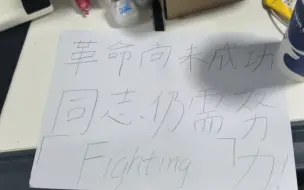 革命向未成功
同志、仍需努
「Fighting」力!